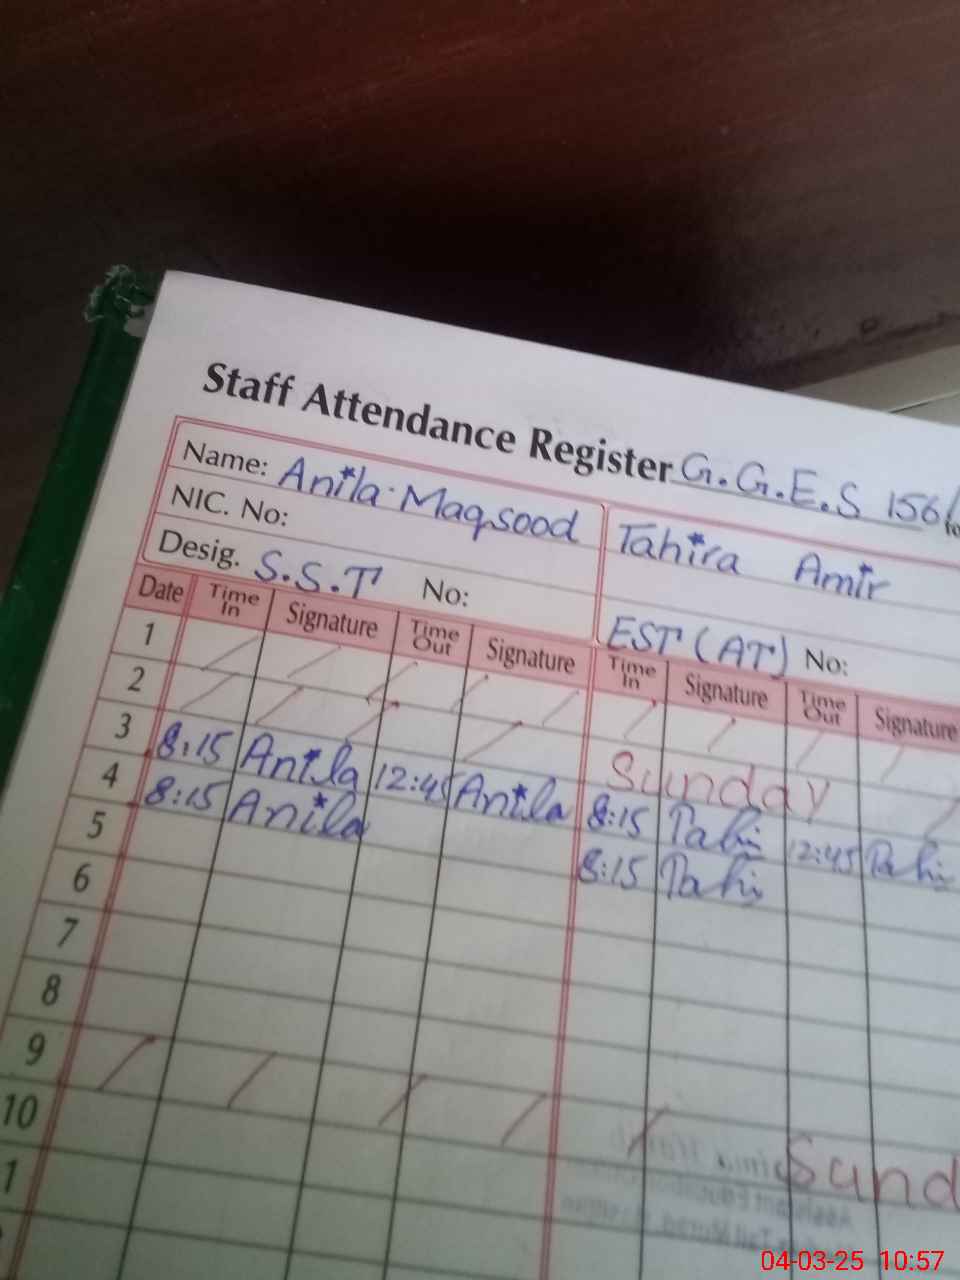 Staff Attendance Register G.G.E.S 156/
Name: Anila Maqsood
Tahira Amir
NIC. No:
Desig. S.S.T No:
EST (AT) No:
Date Time In Signature Time Out Signature Time In Signature Time Out Signature
1
2
Sunday
3 8:15 Anila 12:45 Anila 8:15 Tahi 12:45 Tahi
4 8:15 Anila 8:15 Tahi
5
6
7
8
9
Sund
10
1
04-03-25 10:57